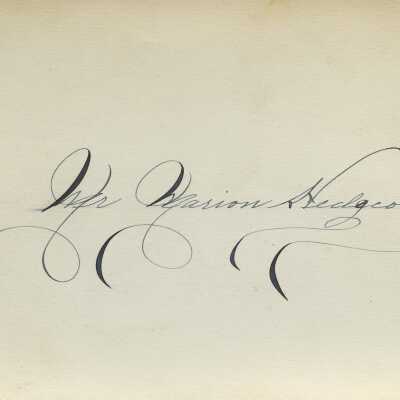 Mr Marion Hedgco